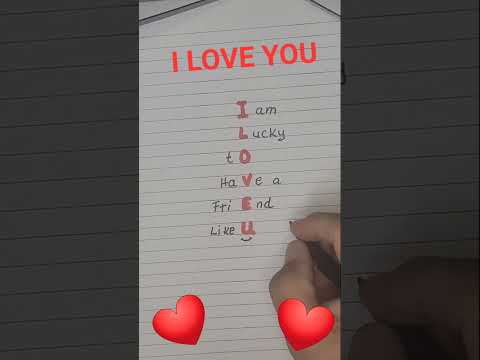 I LOVE YOU
I am
Lucky
tO
HaVe a
FriEnd
Like U